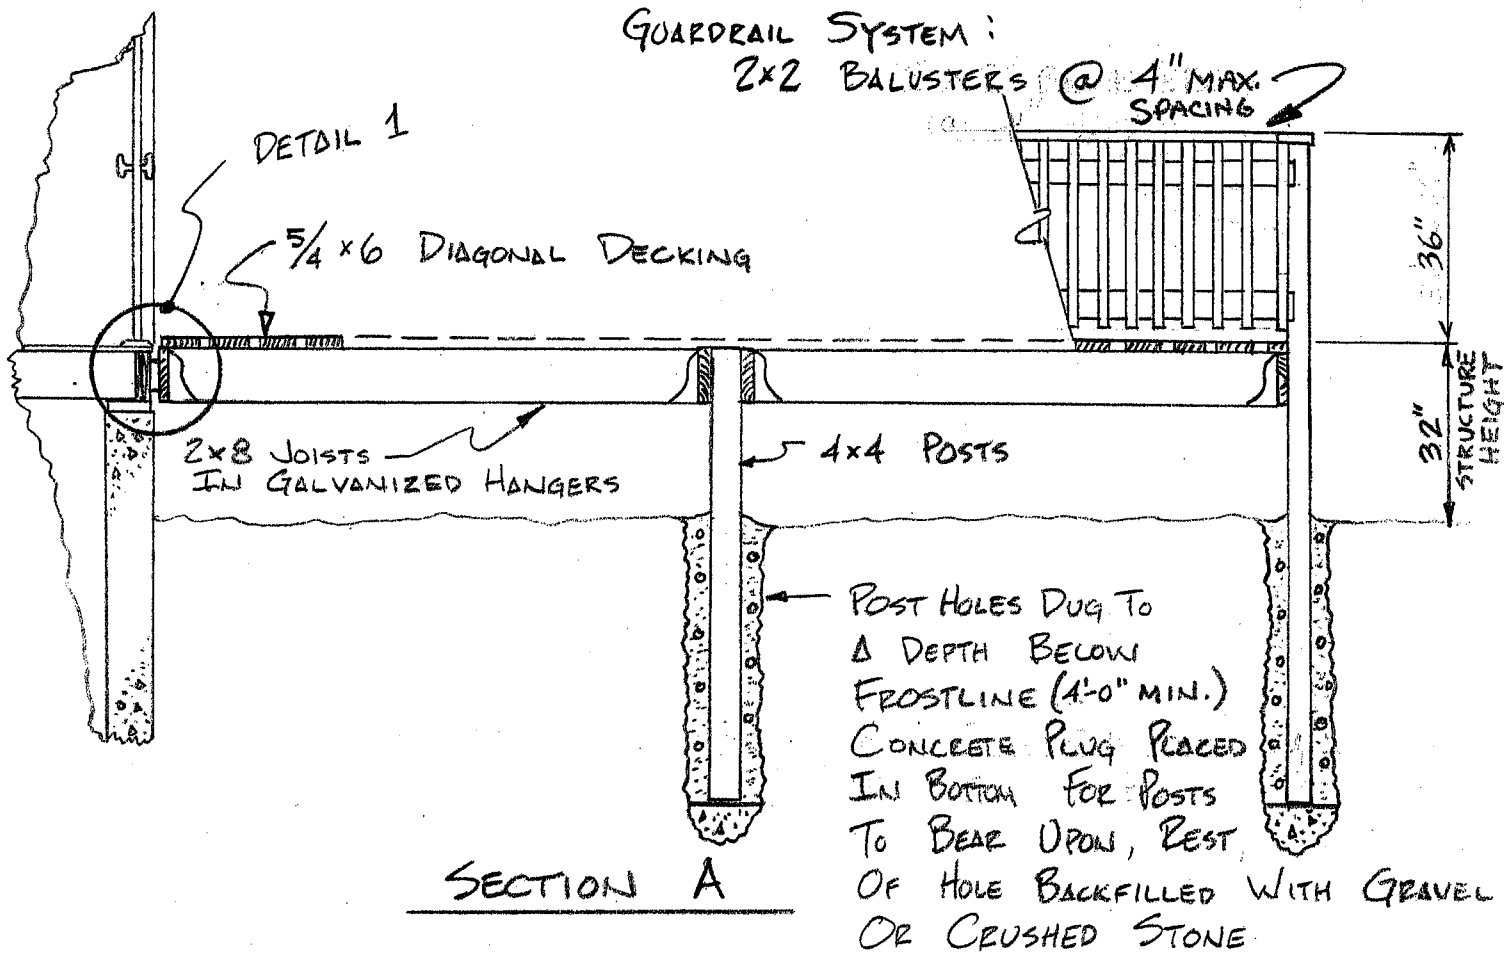 GUARDRAIL SYSTEM:
2x2 BALUSTERS @ 4" MAX.
SPACING
DETAIL 1
5/4 x 6 DIAGONAL DECKING
36"
32"
STRUCTURE
HEIGHT
2x8 JOISTS
IN GALVANIZED HANGERS
4x4 POSTS
POST HOLES DUG TO
A DEPTH BELOW
FROSTLINE (4'-0" MIN.)
CONCRETE PLUG PLACED
IN BOTTOM FOR POSTS
TO BEAR UPON, REST
OF HOLE BACKFILLED WITH GRAVEL
OR CRUSHED STONE
SECTION A